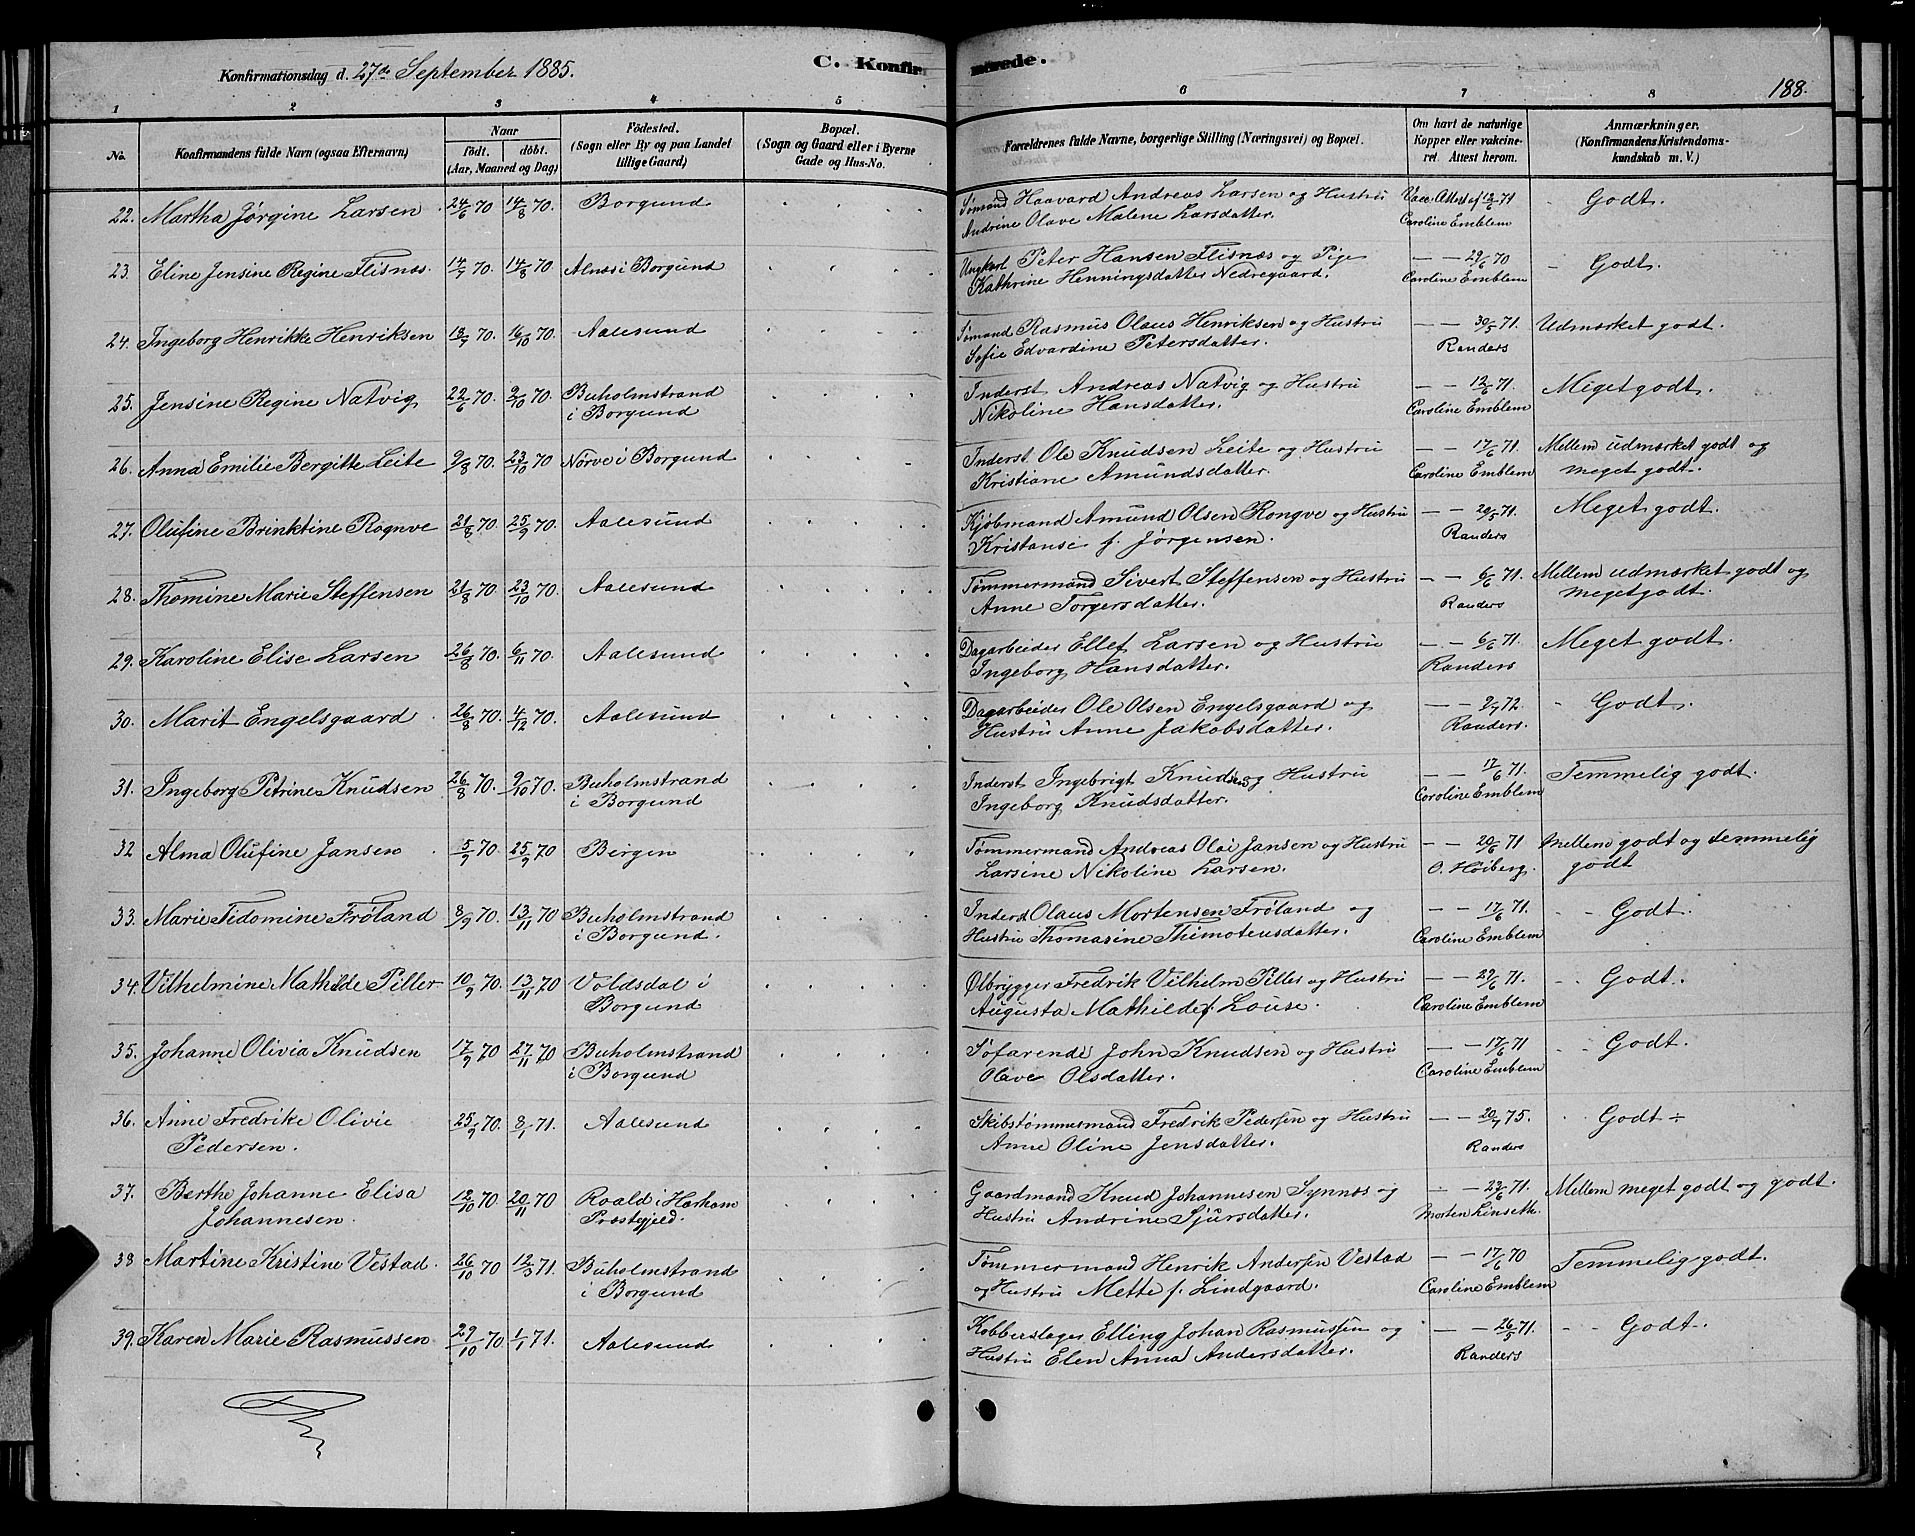 Konfirmationsdag d. 27de September 1885.
C. Konfirmerede.
188.
1 2 3 4 5 6 7 8
No.
Konfirmandens fulde Navn (ogsaa Efternavn)
Naar
födt. döbt.
(Aar, Maaned og Dag)
Födested.
(Sogn eller By og paa Landet
tillige Gaard)
Bopæl.
(Sogn og Gaard eller i Byerne
Gade og Hus-No.
Forældrenes fulde Navne, borgerlige Stilling (Næringsvei) og Bopæl.
Om havt de naturlige
Kopper eller vakcine-
ret. Attest herom.
Anmærkninger.
(Konfirmandens Kristendoms-
kundskab m. V.)
22. Martha Jørgine Larsen 24/6 70 14/8 70. Borgund Sømand Haavard Andreas Larsen og Hustru Vacc. Attest af 12/6 71 Godt.
Andrine Olave Malene Larsdatter. Caroline Emblem
23. Eline Jensine Regine Flisnæs. 14/7 70. 14/8 70 Alnæs i Borgund Ungkarl Peter Hansen Flisnæs og Pige — — 29/6 70 Godt.
Kathrine Henningsdatter Nedregaard. Caroline Emblem
24. Ingeborg Henrikke Henriksen 13/9 70. 16/10 70. Aalesund Sømand Rasmus Olaus Henriksen og Hustru — — 30/5 71. Udmærket godt.
Sofie Edvardine Petersdatter. Randers
25. Jensine Regine Natvig 22/6 70. 2/10 70. Buholmstrand Inderst Andreas Natvig og Hustru — — 12/6 71. Meget godt.
i Borgund Nikoline Hansdatter. Caroline Emblem
26. Anna Emilie Bergitte Leite 9/8 70. 23/10 70 Nørve i Borgund Inderst Ole Knudsen Leite og Hustru — — 17/6 71. Mellem udmærket godt og
Kristiane Amundsdatter. Caroline Emblem meget godt.
27. Olufine Brinktine Rognve 21/8 70 25/9 70. Aalesund Kjøbmand Amund Olsen Rongve og Hustru — — 29/5 71. Meget godt.
Kristanse f. Jørgensen. Randers
28. Thomine Marie Steffensen 21/8 70. 23/10 70. Aalesund Tømmermand Sivert Steffensen og Hustru — — 6/6 71. Mellem udmærket godt og
Anne Torgersdatter. Randers meget godt.
29. Karoline Elise Larsen 26/8 70. 6/11 70. Aalesund Dagarbeider Ellef Larsen og Hustru — — 6/6 71. Meget godt.
Ingeborg Hansdatter. Randers
30. Marit Engelsgaard 26/8 70. 4/12 70. Aalesund Dagarbeider Ole Olsen Engelsgaard og — — 2/7 72. Godt.
Hustru Anne Jakobsdatter. Randers.
31. Ingeborg Petrine Knudsen 26/8 70. 9/10 70. Buholmstrand Inderst Ingebrigt Knudsen og Hustru — — 17/6 71. Temmelig godt.
i Borgund Ingeborg Knudsdatter. Caroline Emblem
32 Alma Olufine Jansen 5/9 70. 25/9 70 Bergen Tømmermand Andreas Olai Jansen og Hustru — — 20/6 71 Mellem godt og temmelig
Larsine Nikoline Larsen. O. Höiberg. godt
33. Marie Tidomine Frøland 8/9 70. 13/11 70 Buholmstrand Inderst Olaus Mortensen Frøland og — — 17/6 71. Godt.
i Borgund. Hustru Thomasine Thimoteusdatter. Caroline Emblem
34. Vilhelmine Mathilde Piller 10/9 70. 13/11 70 Voldsdal i Ølbrygger Fredrik Vilhelm Piller og Hustru — — 29/6 71. Godt.
Borgund Augusta Mathilde f. Louse. Caroline Emblem
35. Johanne Olivia Knudsen 17/9 70 27/11 70 Buholmstrand Søfarende John Knudsen og Hustru — — 17/6 71 Godt.
i Borgund Olave Olsdatter. Caroline Emblem
36. Anne Fredrike Olivie 25/9 70. 8/1 71. Aalesund Skibstømmermand Fredrik Pedersen og Hustru — — 20/7 75. Godt ÷
Pedersen. Anne Oline Jensdatter. Randers
37. Berthe Johanne Elisa 12/10 70 20/11 70 Roald i Harham Gaardmand Knud Johannesen Synnæs og — — 23/6 71. Mellem meget godt og godt.
Johannesen. Præstegjeld. Hustru Andrine Sjursdatter. Morten Linseth.
38 Martine Kristine Vestad. 26/10 70 12/3 71. Buholmstrand Tømmermand Henrik Andersen Vestad — — 17/6 70 Temmelig godt.
i Borgund og Hustru Mette f. Lindgaard. Caroline Emblem
39. Karen Marie Rasmussen 29/10 70 1/1 71. Aalesund Kobberslager Elling Johan Rasmussen og — — 26/5 71. Godt.
Hustru Elen Anna Andersdatter. Randers